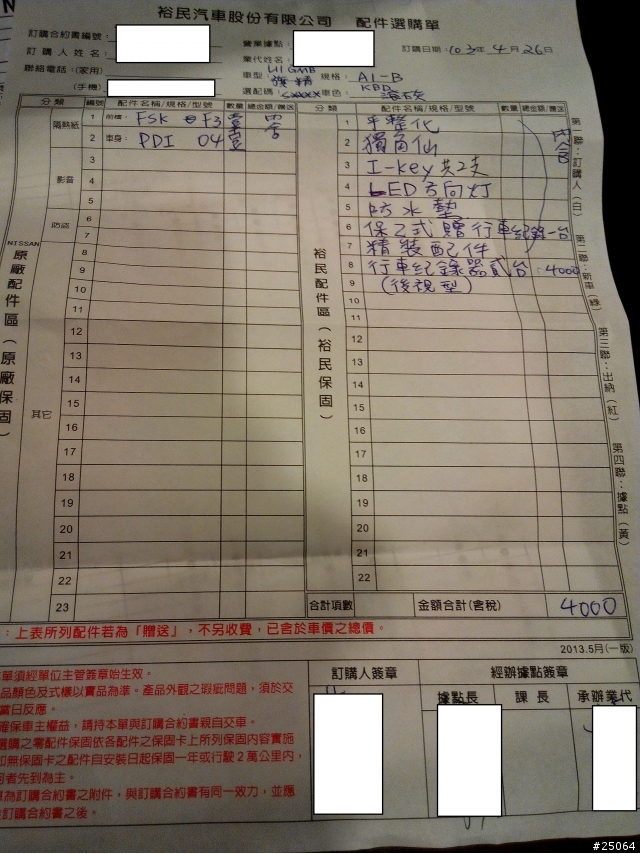 裕民汽車股份有限公司 配件選購單
訂購合約書編號：
營業據點：
訂購日期：103年4月26日
訂購人姓名：
業代姓名：
聯絡電話：(家用)
車型： 規格：A1-B
(手機)
選配碼： 車色：
分類 編號 配件名稱/規格/型號 數量 總金額/贈送 分類 配件名稱/規格/型號 數量 總金額/贈送
NISSAN原廠配件區（原廠保固）
隔熱紙
1 前檔： FSK F3 壹 內含
2 車身： PDI 04 壹
影音
3
4
5
防盜
6
7
其它
8
9
10
11
12
13
14
15
16
17
18
19
20
21
22
23
裕民配件區（裕民保固）
1 平整化 內含
2 獨角仙
3 I-key 共2支
4 LED方向灯
5 防水墊
6 保乙式贈行車紀錄一台
7 精裝配件
8 行車紀錄器貳台：4000
9 (後視型)
10
11
12
13
14
15
16
17
18
19
20
21
22
合計項數 金額合計(含稅) 4000
第一聯：訂購人（白）
第二聯：新車（綠）
第三聯：出納（紅）
第四聯：據點（黃）
：上表所列配件若為「贈送」，不另收費，已含於車價之總價。
2013.5月(一版)
單須經單位主管簽章始生效。
品顏色及式樣以實品為準。產品外觀之瑕疵問題，須於交
當日反應。
確保車主權益，請持本單與訂購合約書親自交車。
選購之零配件保固依各配件之保固卡上所列保固內容實施
如無保固卡之配件自安裝日起保固一年或行駛2萬公里內，
者先到為主。
為訂購合約書之附件，與訂購合約書有同一效力，並應
訂購合約書之後。
訂購人簽章
經辦據點簽章
據點長 課長 承辦業代
#25064